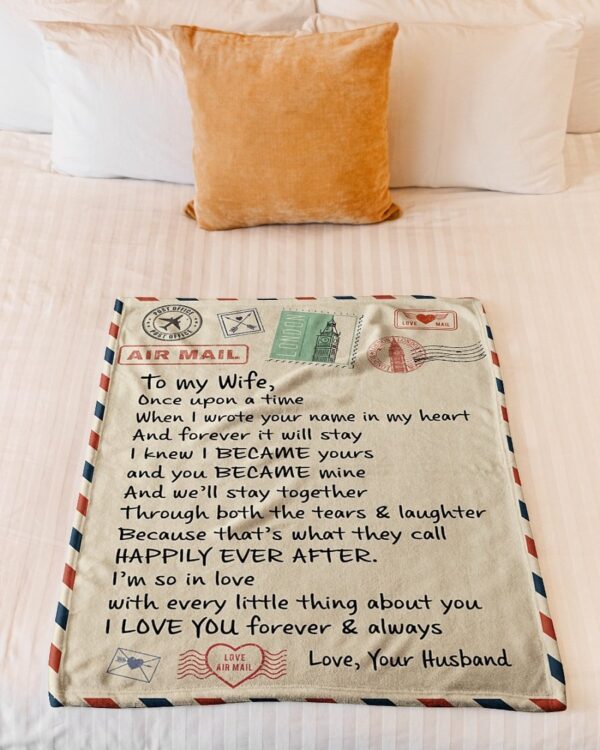 POST OFFICE
POST OFFICE
LONDON
LOVE MAIL
AIR MAIL
To my Wife,
Once upon a time
When I wrote your name in my heart
And forever it will stay
I knew I BECAME yours
and you BECAME mine
And we'll stay together
Through both the tears & laughter
Because that's what they call
HAPPILY EVER AFTER.
I'm so in love
with every little thing about you
I LOVE YOU forever & always
LOVE
AIR MAIL
Love, Your Husband